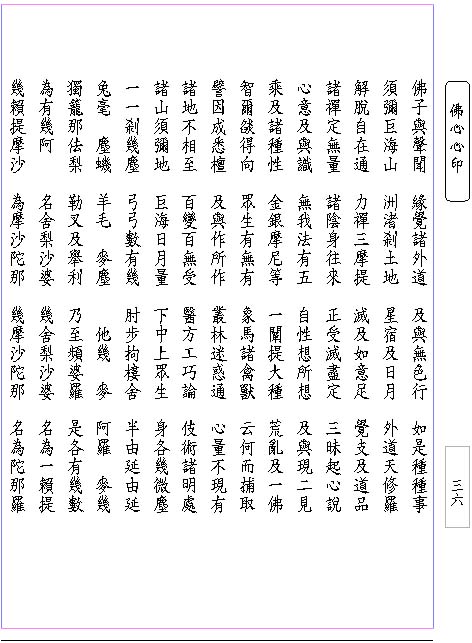 佛心心印
佛子與聲聞 緣覺諸外道 及與無色行 如是種種事
須彌巨海山 洲渚剎土地 星宿及日月 外道天修羅
解脫自在通 力禪三摩提 滅及如意足 覺支及道品
諸禪定無量 諸陰身往來 正受滅盡定 三昧起心說
心意及與識 無我法有五 自性想所想 及與現二見
乘及諸種性 金銀摩尼等 一闡提大種 荒亂及一佛
智爾燄得向 眾生有無有 象馬諸禽獸 云何而捕取
譬因成悉檀 及與作所作 叢林迷惑通 心量不現有
諸地不相至 百變百無受 醫方工巧論 伎術諸明處
諸山須彌地 巨海日月量 下中上眾生 身各幾微塵
一一剎幾塵 弓弓數有幾 肘步拘樓舍 半由延由延
兔毫 塵蟣 羊毛 麥塵 他幾 麥 阿羅 麥幾
獨籠那佉梨 勒叉及舉利 乃至頻婆羅 是各有幾數
為有幾阿 名舍梨沙婆 幾舍梨沙婆 名為一賴提
幾賴提摩沙 為摩沙陀那 幾摩沙陀那 名為陀那羅
三六